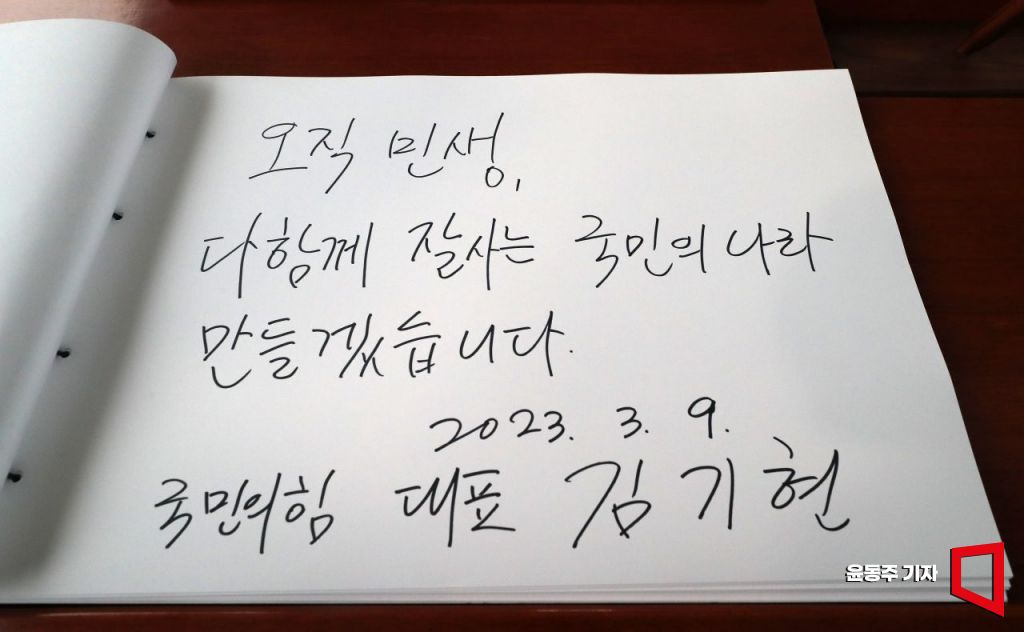 오직 민생,
다함께 잘사는 국민의 나라
만들겠습니다.
2023. 3. 9.
국민의힘 대표 김기현
윤동주 기자